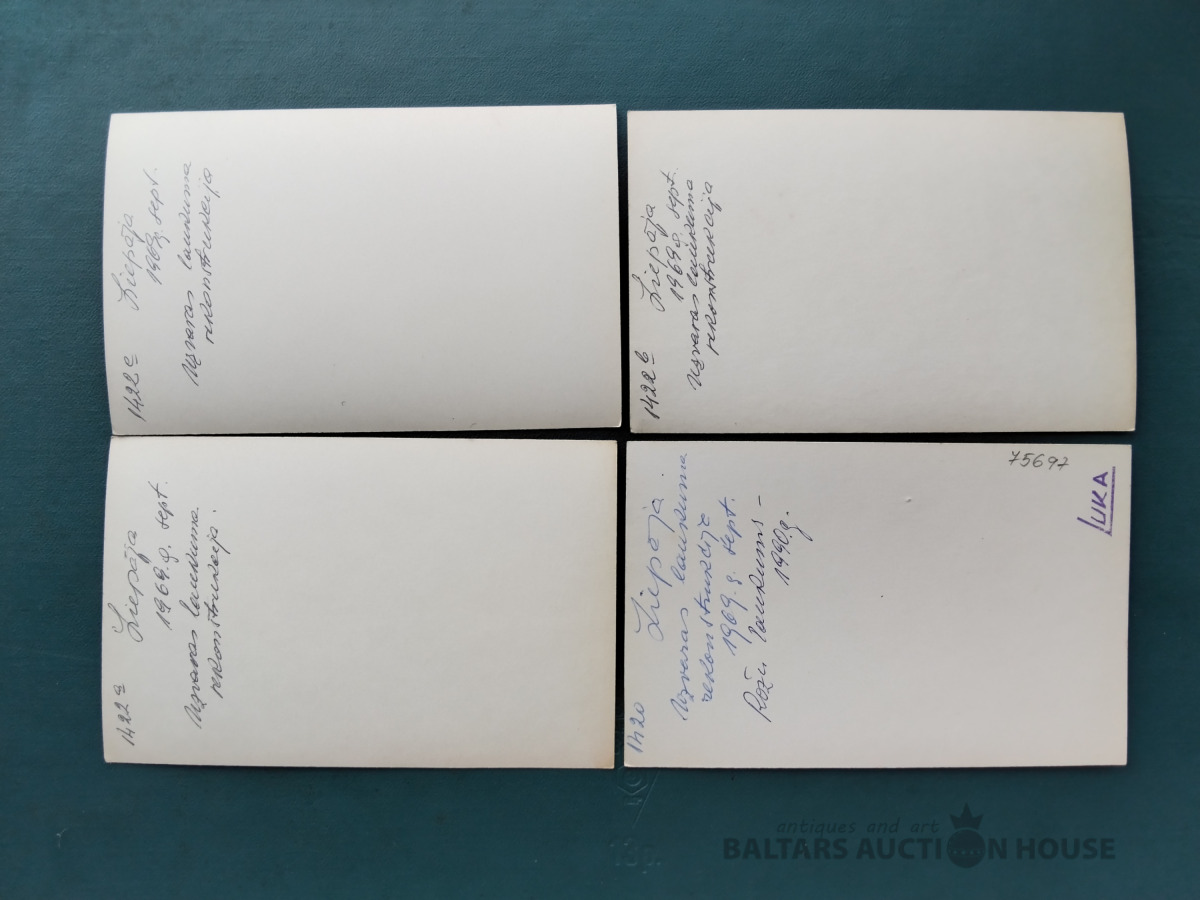 1422 c
Liepāja
1969.g. sept.
Uzvaras laukuma
rekonstrukcija
1422 b
Liepāja
1969.g. sept.
Uzvaras laukuma
rekonstrukcija
1422 a
Liepāja
1969.g. sept.
Uzvaras laukuma
rekonstrukcija.
1420
Liepāja.
Uzvaras laukuma
rekonstrukcija
1969.g. sept.
Rožu laukums -
1990.g.
75697
LUKA
antiques and art
BALTARS AUCTION HOUSE